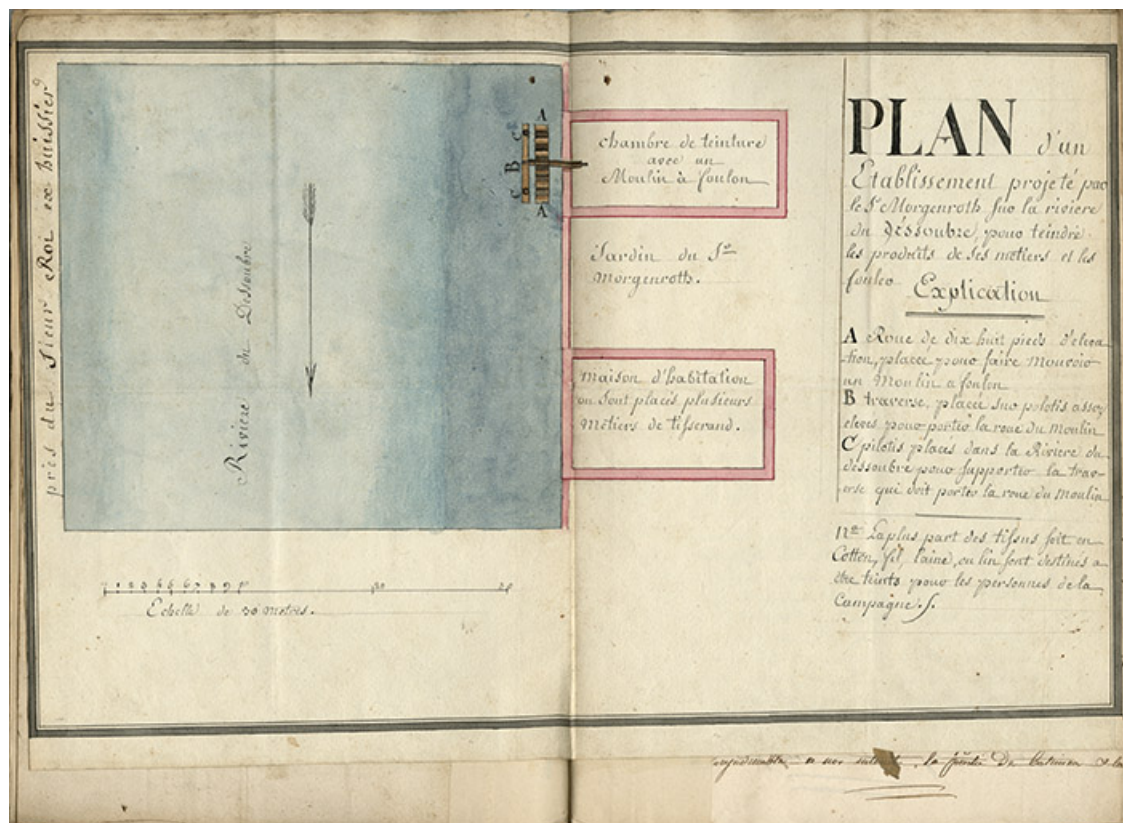 près du Sieur Roi ex huissier
Riviere du Dessoubre
A
C
B
C
A
chambre de teinture
avec un
Moulin à foulon
Jardin du Sr
Morgenroth.
maison d'habitation
ou sont placés plusieurs
métiers de tisserand.
1 2 3 4 5 6 7 8 9
Echelle de 30 metres.
PLAN d'un
Etablissement projeté par
le Sr Morgenroth sur la riviere
du Dessoubre, pour teindre
les produits de ses métiers et les
fouler
Explication
A Roue de dix huit pieds d'eleva-
tion, placée pour faire mouvoir
un Moulin a foulon
B traverse, placée sur pilotis assez
elevés pour porter la roue du moulin
C pilotis placés dans la Riviere du
dessoubre pour supporter la trav-
erse qui doit porter la roue du Moulin
Nta La plus part des tissus soit en
Cotton, fil, laine, ou lin sont destinés a
être teints pour les personnes de la
Campagne ./.
la